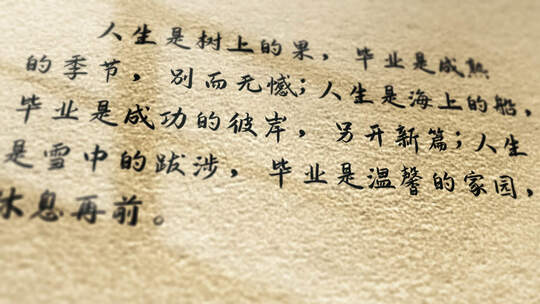 人生是树上的果，毕业是成熟
的季节，别而无憾；人生是海上的船，
毕业是成功的彼岸，另开新篇；人生
是雪中的跋涉，毕业是温馨的家园，
休息再前。